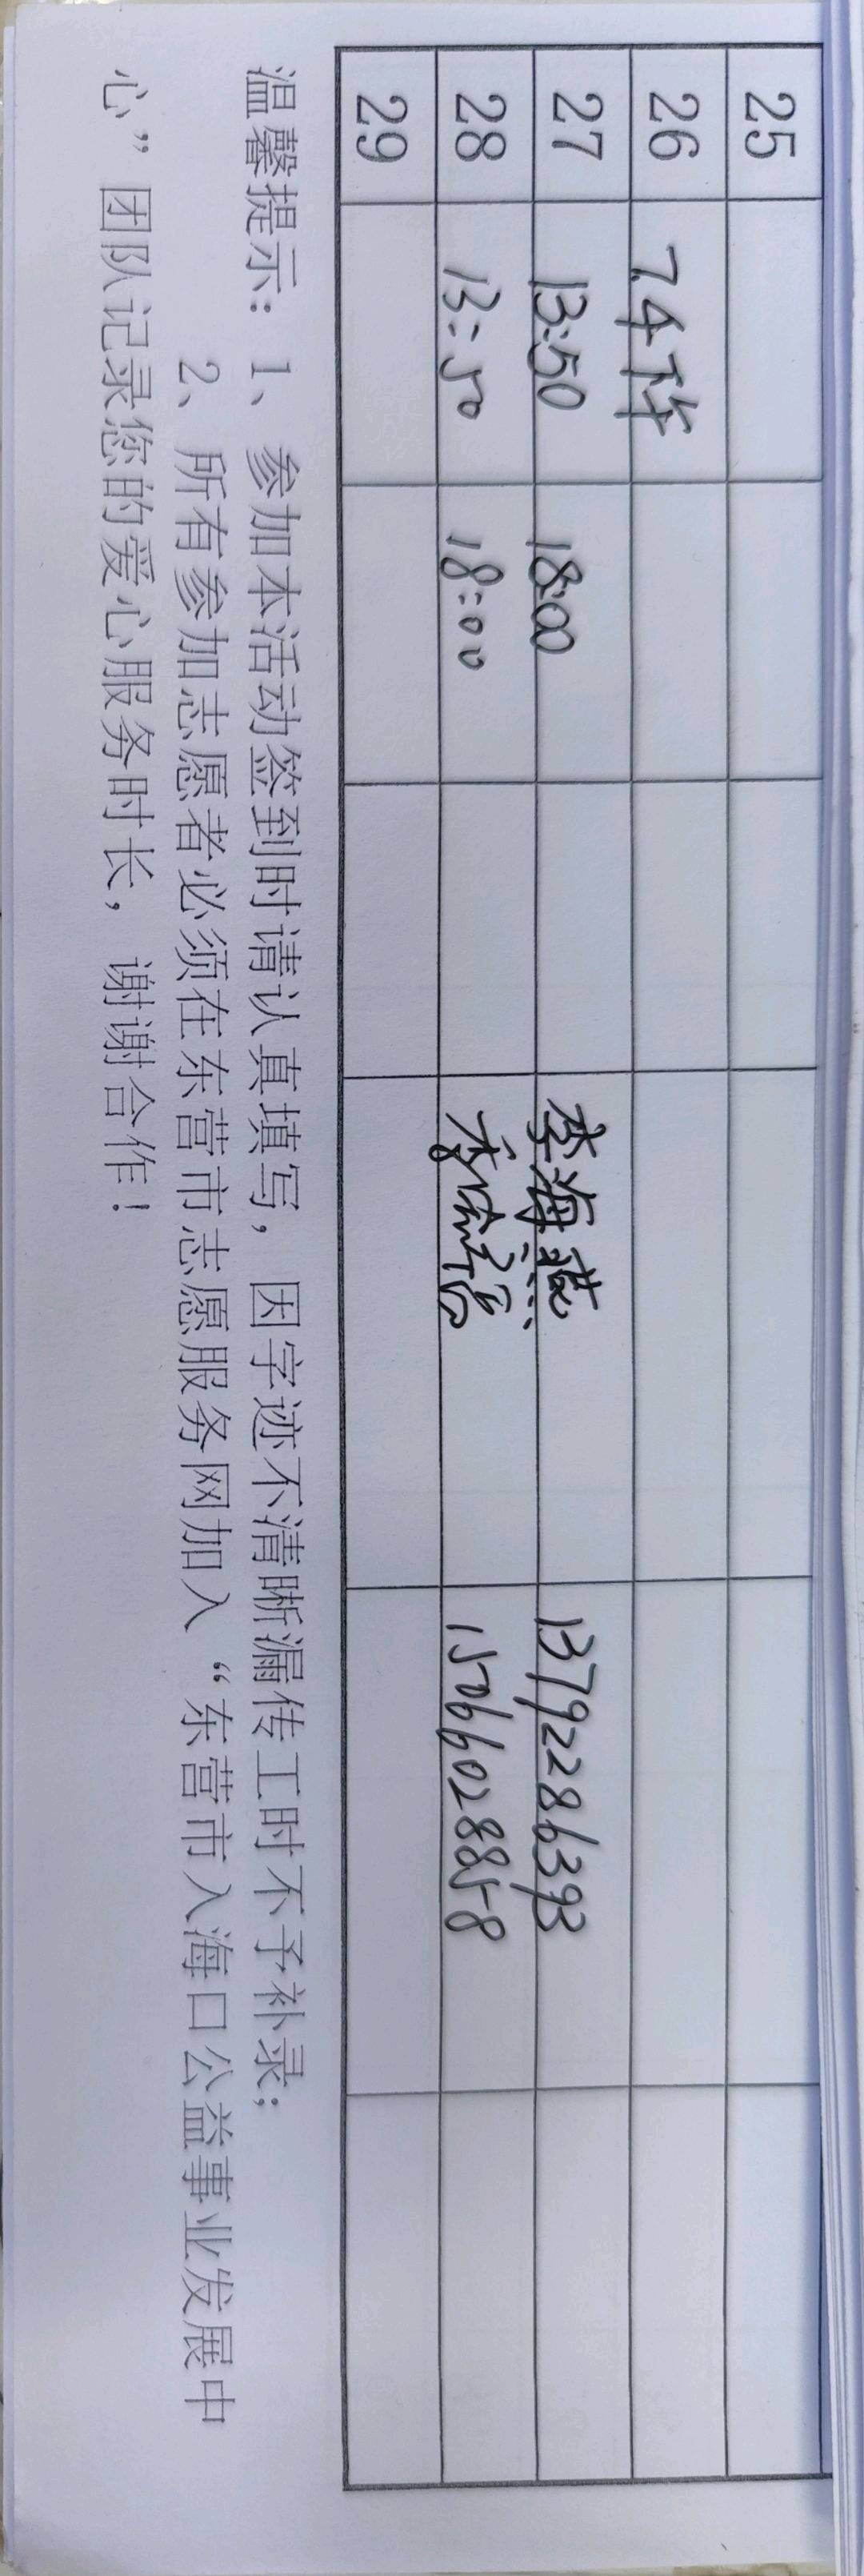 25
26 7.4下午
27 13:50 18:00 李海燕 13792286393
28 13:50 18:00 15066028858
29
温馨提示：1、参加本活动签到时请认真填写，因字迹不清晰漏传工时不予补录；
2、所有参加志愿者必须在东营市志愿服务网加入“东营市入海口公益事业发展中
心”团队记录您的爱心服务时长，谢谢合作！